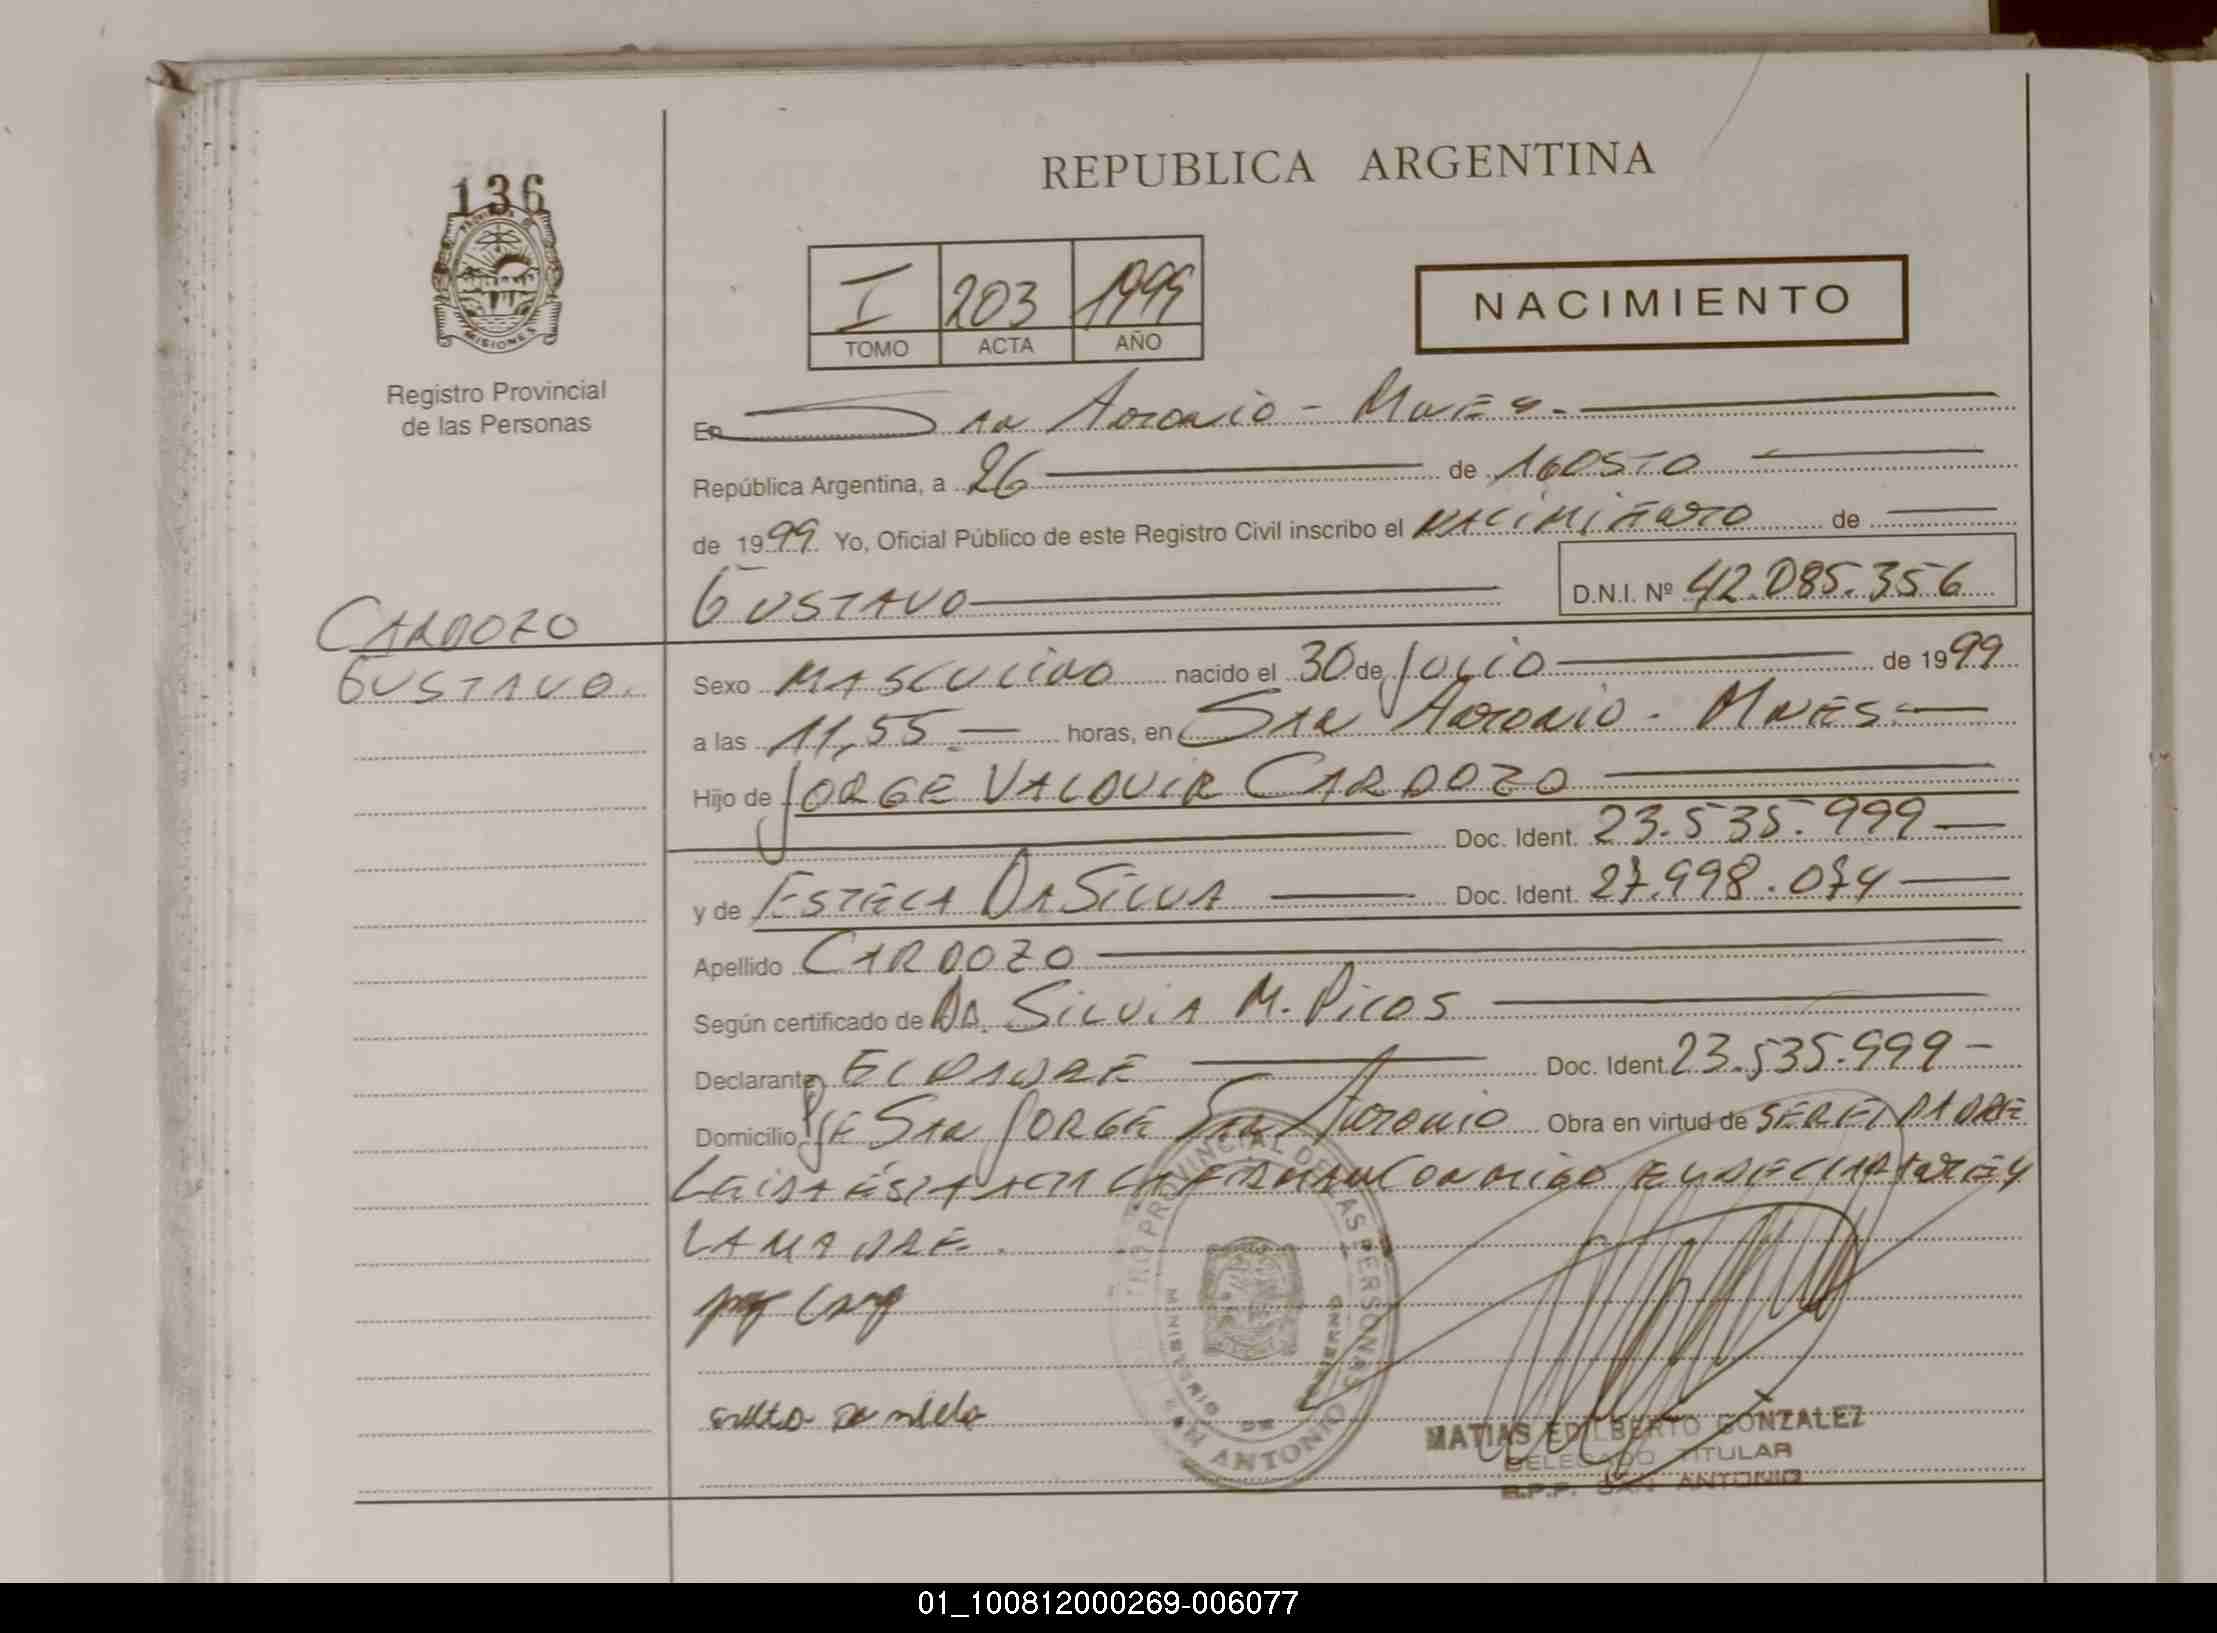 136
REPUBLICA ARGENTINA
PROVINCIA DE MISIONES
Registro Provincial
de las Personas
I 203 1999
TOMO ACTA AÑO
NACIMIENTO
En San Antonio - Mnes.
República Argentina, a 26 de Agosto
de 1999 Yo, Oficial Público de este Registro Civil inscribo el Nacimiento de
Gustavo D.N.I. Nº 42.085.356
CARDOZO
GUSTAVO.
Sexo Masculino nacido el 30 de Julio de 1999
a las 11,55.- horas, en San Antonio - Mnes.-
Hijo de Jorge Valduir Cardozo
Doc. Ident. 23.535.999
y de Estela Da Silva Doc. Ident. 27.998.074
Apellido Cardozo
Según certificado de Da. Silvia M. Picos
Declarante El Padre Doc. Ident. 23.535.999-
Domicilio Pje San Jorge San Antonio Obra en virtud de ser el padre
Leida esta acta la firman conmigo el declarante y
la madre.
REGISTRO PROVINCIAL DE LAS PERSONAS
MINISTERIO DE GOBIERNO
SAN ANTONIO
MATIAS EDILBERTO GONZALEZ
DELEGADO TITULAR
R.P.P. SAN ANTONIO
01_100812000269-006077